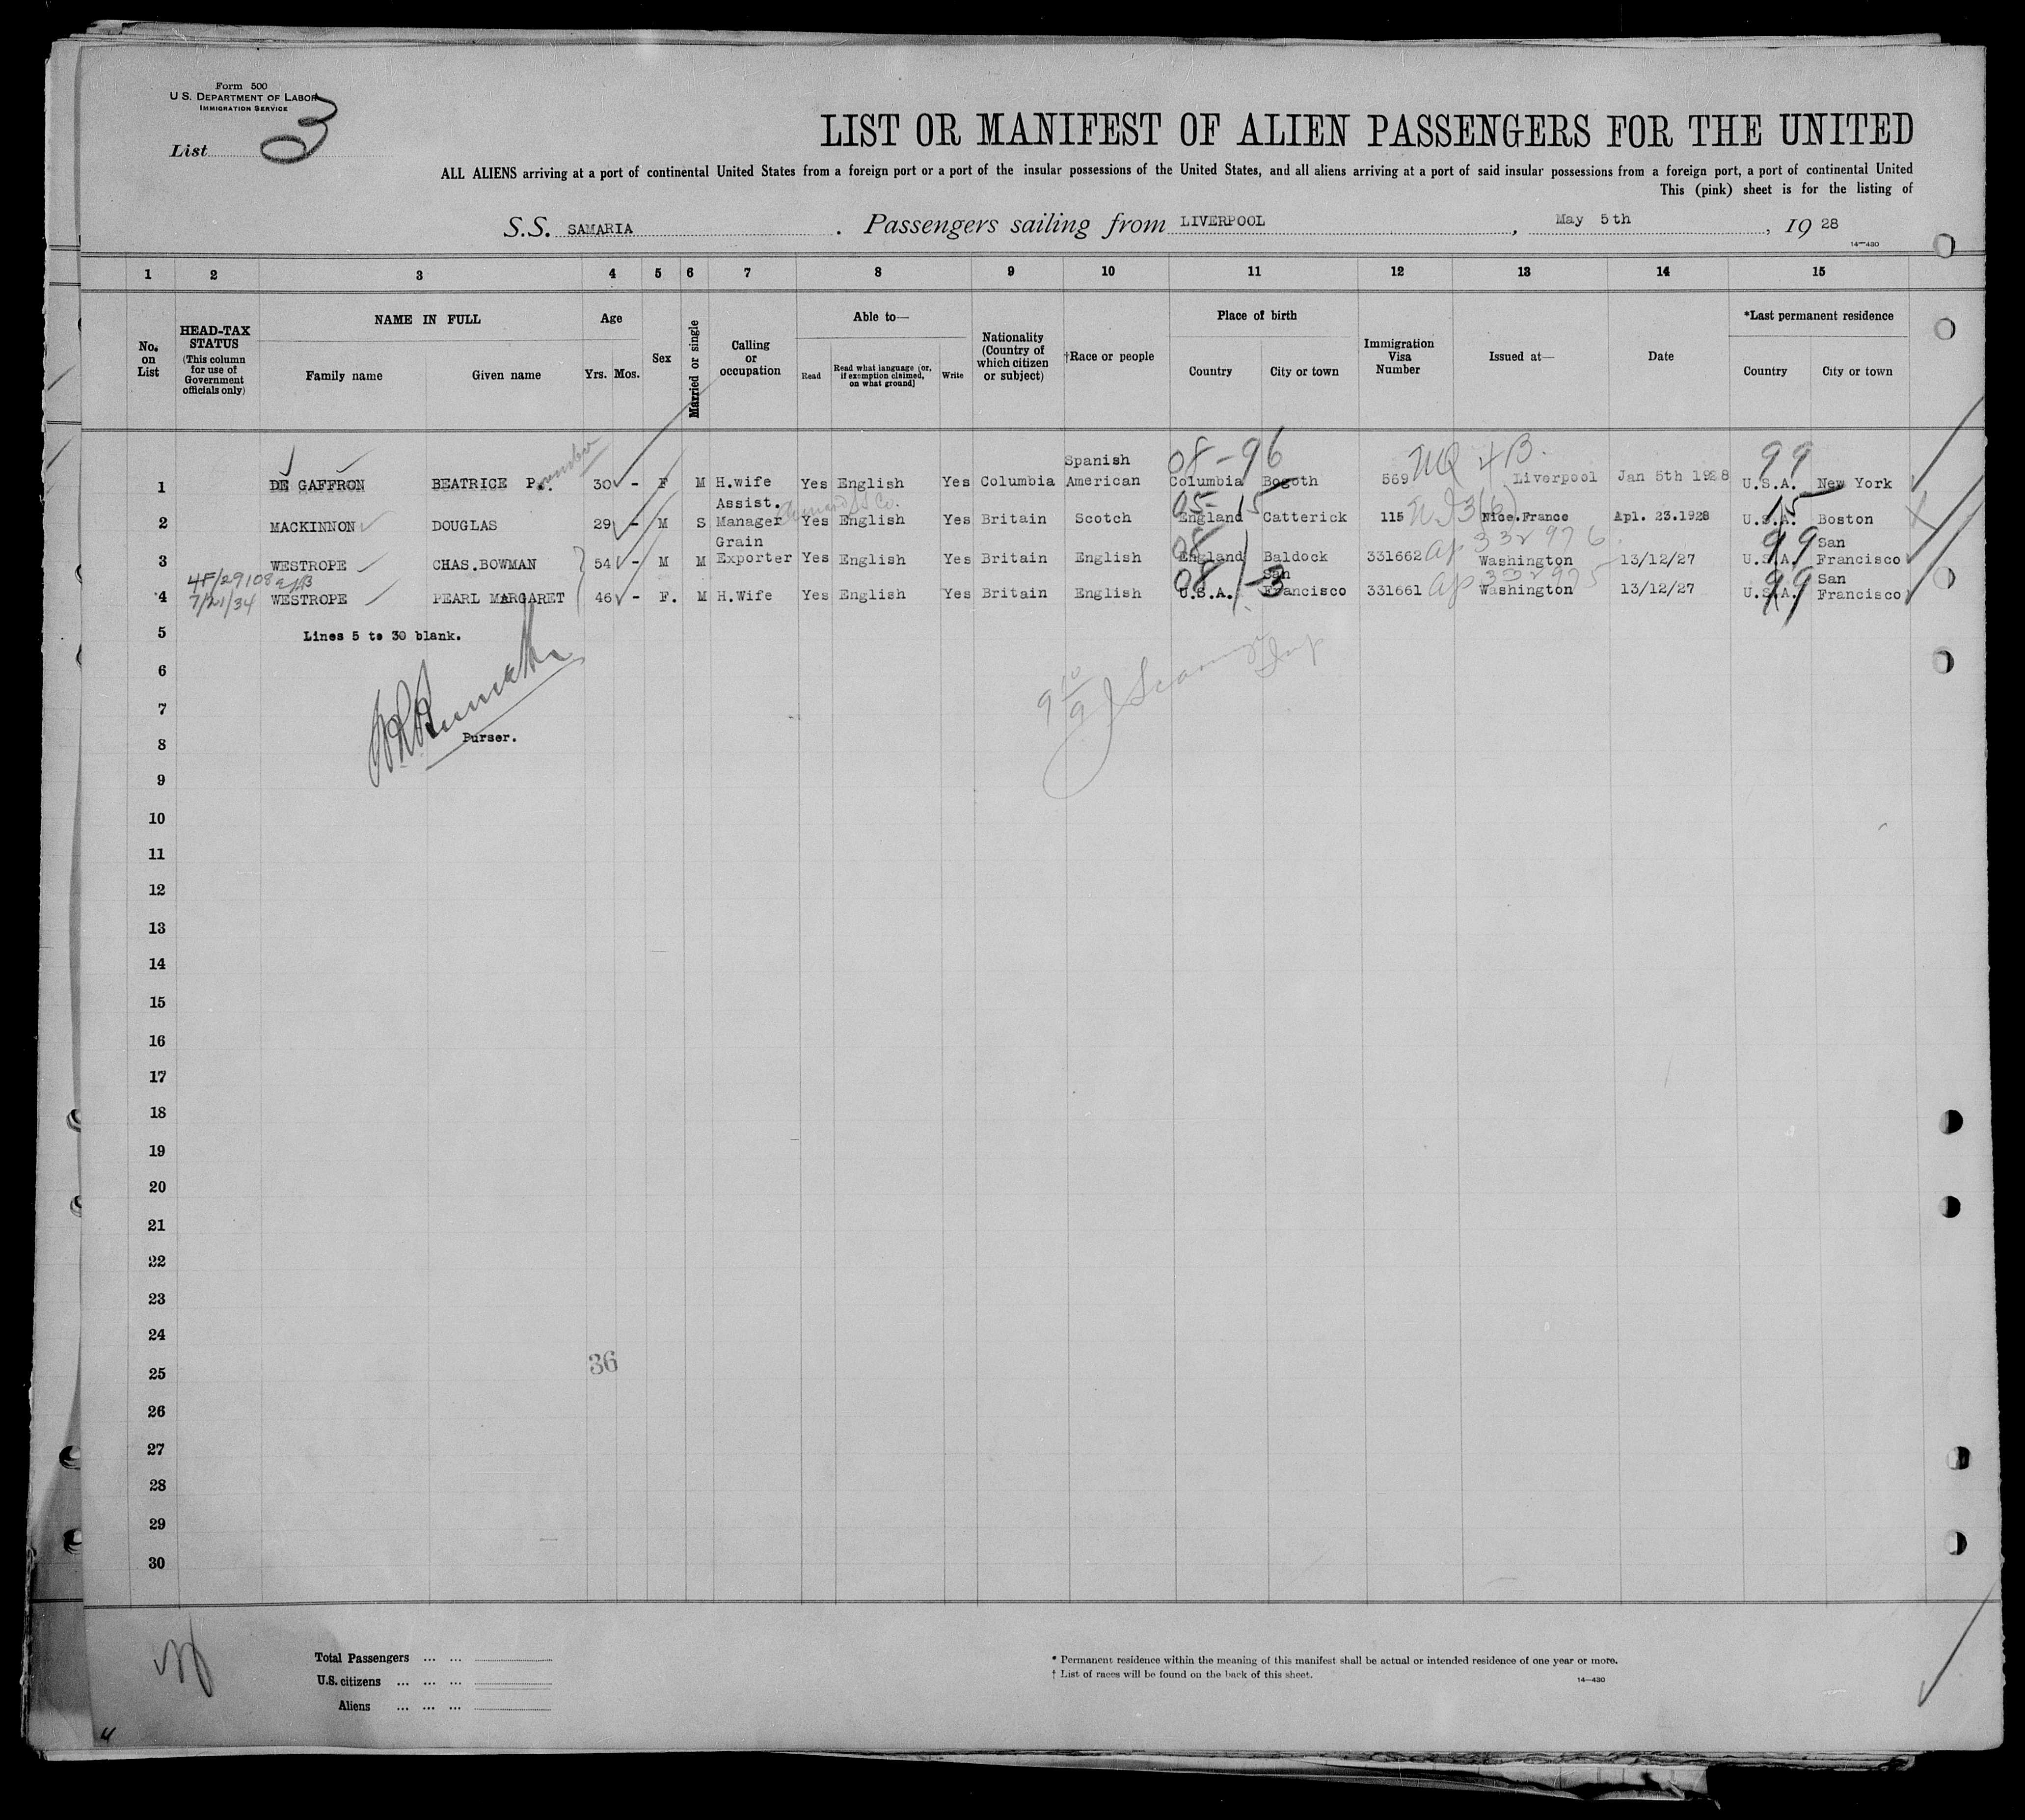 Form 500
U S. DEPARTMENT OF LABOR
IMMIGRATION SERVICE
List 3
LIST OR MANIFEST OF ALIEN PASSENGERS FOR THE UNITED
ALL ALIENS arriving at a port of continental United States from a foreign port or a port of the insular possessions of the United States, and all aliens arriving at a port of said insular possessions from a foreign port, a port of continental United
This (pink) sheet is for the listing of
S.S. SAMARIA . Passengers sailing from LIVERPOOL , May 5th , 19 28
14—430
1 2 3 4 5 6 7 8 9 10 11 12 13 14 15
No. on List
HEAD-TAX STATUS
(This column for use of Government officials only)
NAME IN FULL
Family name Given name
Age
Yrs. Mos.
Sex
Married or single
Calling or occupation
Able to—
Read
Read what language (or, if exemption claimed, on what ground)
Write
Nationality (Country of which citizen or subject)
†Race or people
Place of birth
Country City or town
Immigration Visa Number
Issued at—
Date
*Last permanent residence
Country City or town
08-96 NQ 4B. 99
1 DE GAFFRON BEATRICE P. 30 - F M H.wife Yes English Yes Columbia Spanish American Columbia Bogoth 569 Liverpool Jan 5th 1928 U.S.A. New York
05-15 15
2 MACKINNON DOUGLAS 29 - M S Assist. Manager Yes English Yes Britain Scotch England Catterick 115 Nice.France Apl. 23.1928 U.S.A. Boston
08 332976 99
3 WESTROPE CHAS.BOWMAN 54 - M M Grain Exporter Yes English Yes Britain English England Baldock 331662 Washington 13/12/27 U.S.A. San Francisco
4F/29108
7/21/34
08 -3 332975 99
4 WESTROPE PEARL MARGARET 46 - F. M H.Wife Yes English Yes Britain English U.S.A. San Francisco 331661 Washington 13/12/27 U.S.A. San Francisco
5 Lines 5 to 30 blank.
6
7
8 Purser.
9
10
11
12
13
14
15
16
17
18
19
20
21
22
23
24
36
25
26
27
28
29
30
Total Passengers ... ...
U.S. citizens ... ... ...
Aliens ... ... ...
* Permanent residence within the meaning of this manifest shall be actual or intended residence of one year or more.
† List of races will be found on the back of this sheet.
14—430
4